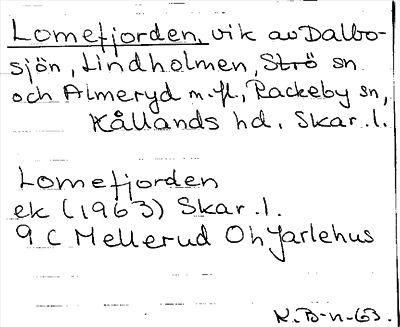 Lomefjorden, vik av Dalbo-
sjön, Lindholmen, Strö sn
och Almeryd m.fl., Rackeby sn,
Kållands hd. Skar. l.
Lomefjorden
ek (1963) Skar. l.
9 C Mellerud Ohjarlehus
K. B-n-63.